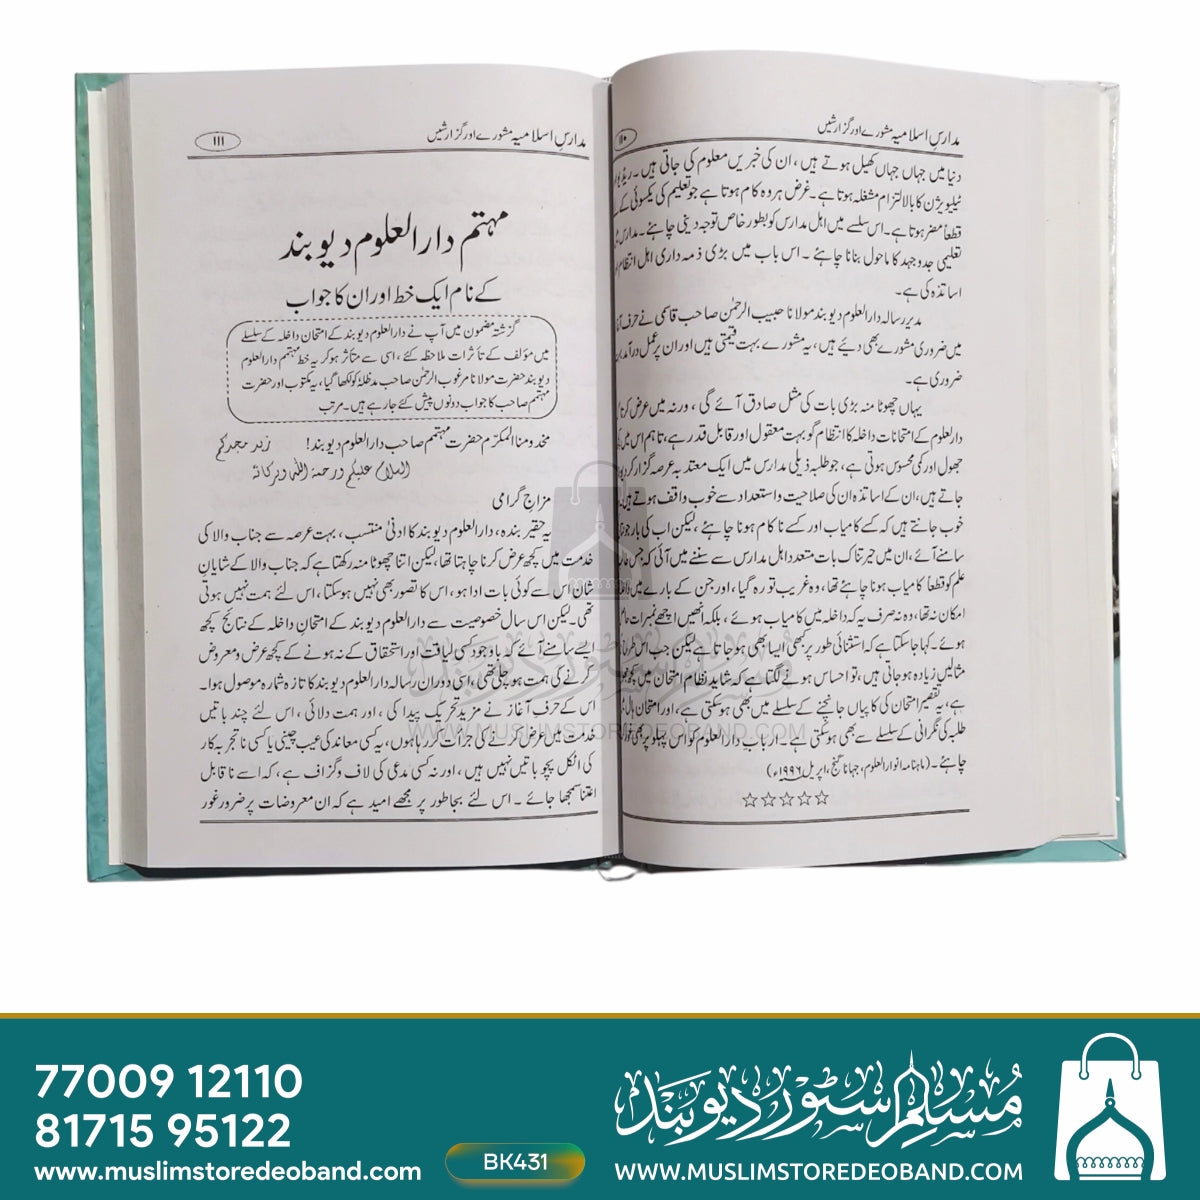 مدارسِ اسلامیہ مشورے اور گزارشیں
۱۱۰
دنیا میں جہاں جہاں کھیل ہوتے ہیں، ان کی خبریں معلوم کی جاتی ہیں۔ ریڈیو
ٹیلیویژن کا بالالتزام مشغلہ ہوتا ہے۔ غرض ہر وہ کام ہوتا ہے جو تعلیم کی یکسوئی کے
قطعاً مضر ہوتا ہے۔ اس سلسلے میں اہل مدارس کو بطور خاص توجہ دینی چاہئے۔ مدارس
تعلیمی جدوجہد کا ماحول بنانا چاہئے۔ اس باب میں بڑی ذمہ داری اہل انتظام
اساتذہ کی ہے۔
مدیر رسالہ دارالعلوم دیوبند مولانا حبیب الرحمٰن صاحب قاسمی نے حرف آغاز
میں ضروری مشورے بھی دیئے ہیں، یہ مشورے بہت قیمتی ہیں اور ان پر عمل درآمد
ضروری ہے۔
یہاں چھوٹا منہ بڑی بات کی مثل صادق آئے گی، ورنہ میں عرض کرتا
دارالعلوم کے امتحانات داخلہ کا انتظام گو بہت معقول اور قابل قدر ہے، تاہم اس میں
جھول اور کمی محسوس ہوتی ہے، جو طلبہ ذیلی مدارس میں ایک معتد بہ عرصہ گزار کر
جاتے ہیں، ان کے اساتذہ ان کی صلاحیت و استعداد سے خوب واقف ہوتے ہیں
خوب جانتے ہیں کہ کسے کامیاب اور کسے ناکام ہونا چاہئے، لیکن اب کی بار جو
سامنے آئے، ان میں حیرتناک بات متعدد اہل مدارس سے سننے میں آئی کہ جس
علم کو قطعاً کامیاب ہونا چاہئے تھا، وہ غریب تو رہ گیا، اور جن کے بارے میں
امکان نہ تھا، وہ نہ صرف یہ کہ داخلہ میں کامیاب ہوئے، بلکہ انھیں اچھے نمبرات
ہوئے۔ کہا جا سکتا ہے کہ استثنائی طور پر کبھی ایسا بھی ہو جاتا ہے لیکن جب اس طرح
مثالیں زیادہ ہو جاتی ہیں، تو احساس ہونے لگتا ہے کہ شاید نظام امتحان میں کچھ
ہے، یہ تقصیر امتحان کی کاپیاں جانچنے کے سلسلے میں بھی ہو سکتی ہے، اور امتحان ہال
طلبہ کی نگرانی کے سلسلے سے بھی ہو سکتی ہے۔ ارباب دارالعلوم کو اس پہلو پر بھی غور
چاہئے۔ (ماہنامہ انوار العلوم، جہاناگنج، اپریل ۱۹۹۶ء)
☆☆☆☆☆
مدارسِ اسلامیہ مشورے اور گزارشیں
۱۱۱
مہتمم دارالعلوم دیوبند
کے نام ایک خط اور ان کا جواب
گزشتہ مضمون میں آپ نے دارالعلوم دیوبند کے امتحان داخلہ کے سلسلے
میں مؤلف کے تأثرات ملاحظہ کئے، اسی سے متأثر ہو کر یہ خط مہتمم دارالعلوم
دیوبند حضرت مولانا مرغوب الرحمٰن صاحب مدظلہٗ کو لکھا گیا، یہ مکتوب اور حضرت
مہتمم صاحب کا جواب دونوں پیش کئے جا رہے ہیں۔ مرتب
مخدومنا المکرّم حضرت مہتمم صاحب دارالعلوم دیوبند! زید مجدکم
السلام علیکم ورحمۃ اللہ وبرکاتہ
مزاج گرامی
یہ حقیر بندہ، دارالعلوم دیوبند کا ادنیٰ منتسب، بہت عرصہ سے جناب والا کی
خدمت میں کچھ عرض کرنا چاہتا تھا، لیکن اتنا چھوٹا منہ رکھتا ہے کہ جناب والا کے شایانِ
شان اس سے کوئی بات ادا ہو، اس کا تصور بھی نہیں ہو سکتا، اس لئے ہمت نہیں ہوتی
تھی۔ لیکن اس سال خصوصیت سے دارالعلوم دیوبند کے امتحانِ داخلہ کے نتائج کچھ
ایسے سامنے آئے کہ باوجود کسی لیاقت اور استحقاق کے نہ ہونے کے کچھ عرض و معروض
کرنے کی ہمت ہو چلی تھی، اسی دوران رسالہ دارالعلوم دیوبند کا تازہ شمارہ موصول ہوا۔
اس کے حرفِ آغاز نے مزید تحریک پیدا کی، اور ہمت دلائی، اس لئے چند باتیں
خدمت میں عرض کرنے کی جرأت کر رہا ہوں، یہ کسی معاند کی عیب چینی یا کسی ناتجربہ کار
کی اٹکل پچو باتیں نہیں ہیں، اور نہ کسی مدعی کی لاف و گزاف ہے، کہ اسے ناقابل
اعتنا سمجھا جائے۔ اس لئے بجا طور پر مجھے امید ہے کہ ان معروضات پر ضرور غور
مسلم سٹور دیوبند
WWW.MUSLIMSTOREDEOBAND.COM
77009 12110
81715 95122
www.muslimstoredeoband.com
BK431
مُسلم سٹور دیوبند
WWW.MUSLIMSTOREDEOBAND.COM